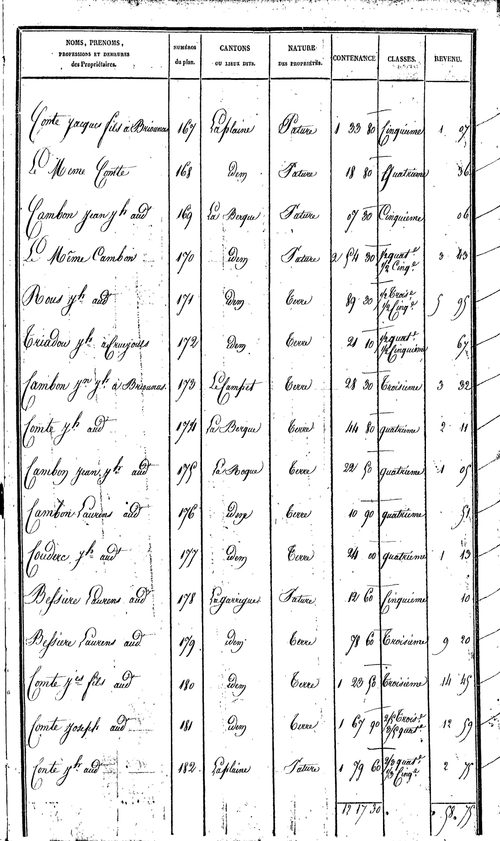 NOMS, PRENOMS, PROFESSIONS ET DEMEURES des Propriétaires. NUMÉROS du plan. CANTONS OU LIEUX DITS. NATURE DES PROPRIÉTÉS. CONTENANCE CLASSES. REVENU.
Comte Jacques fils à 167 Laplaine Pature 1 33 80 Cinquieme 1 07
Le Meme Comte 168 idem Pature 18 80 Quatrieme 36
Cambon Jean Jh aud 169 La Borgue Pature 07 30 Cinquieme 06
Le Même Cambon 170 idem Pature 2 54 30 1/2 quat.e 1/2 Cinq.e 3 43
Rous Jh aud 171 idem Terre 89 30 1/2 Trois.e 1/2 Cinq.e 5 95
Triadou Jh 172 idem Terre 21 10 1/2 quat.e 1/2 Cinquieme 67
Cambon Jn Jh à 173 Terre 28 30 Troisieme 3 32
Comte Jh aud 174 La Borgue Terre 44 80 quatrieme 2 11
Cambon Jean Jh aud 175 La Roque Terre 22 50 quatrieme 1 05
Cambon Laurens aud 176 idem Terre 10 90 quatrieme 51
Couderc Jh aud 177 idem Terre 24 00 quatrieme 1 13
Bessiere Laurens aud 178 Lagarrigue Pature 12 60 Cinquieme 10
Bessiere Laurens aud 179 idem Terre 78 60 Troisieme 9 20
Comte Jes fils aud 180 idem Terre 1 23 50 Troisieme 14 45
Comte Joseph aud 181 idem Terre 1 67 90 2/5 Trois.e 3/5 quat.e 12 59
Conte Jh aud 182 Laplaine Pature 1 79 60 2/3 quat.e 1/3 Cinq.e 2 75
12 17 30 58. 75